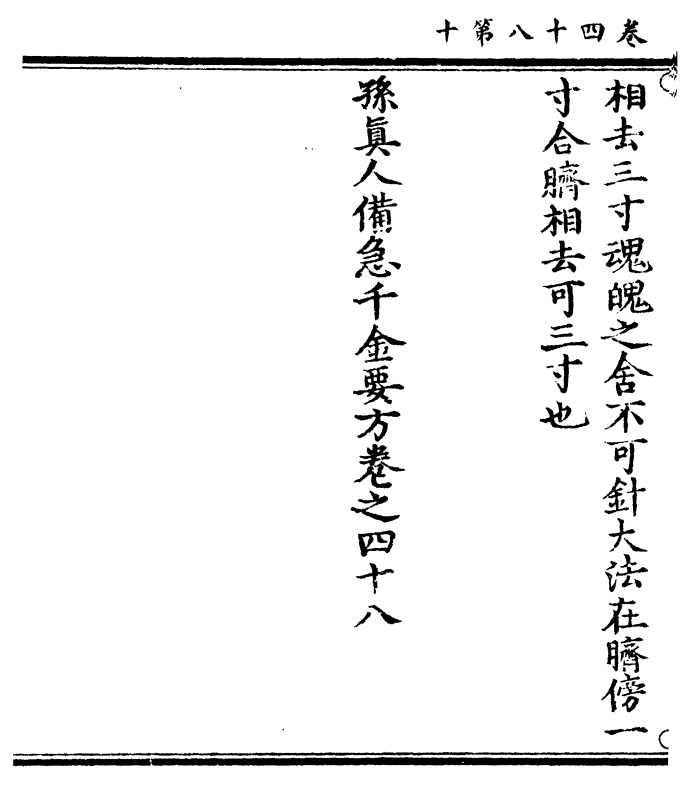 卷四十八第十
相去三寸魂魄之舍不可針大法在臍傍一
寸合臍相去可三寸也
孫真人備急千金要方卷之四十八